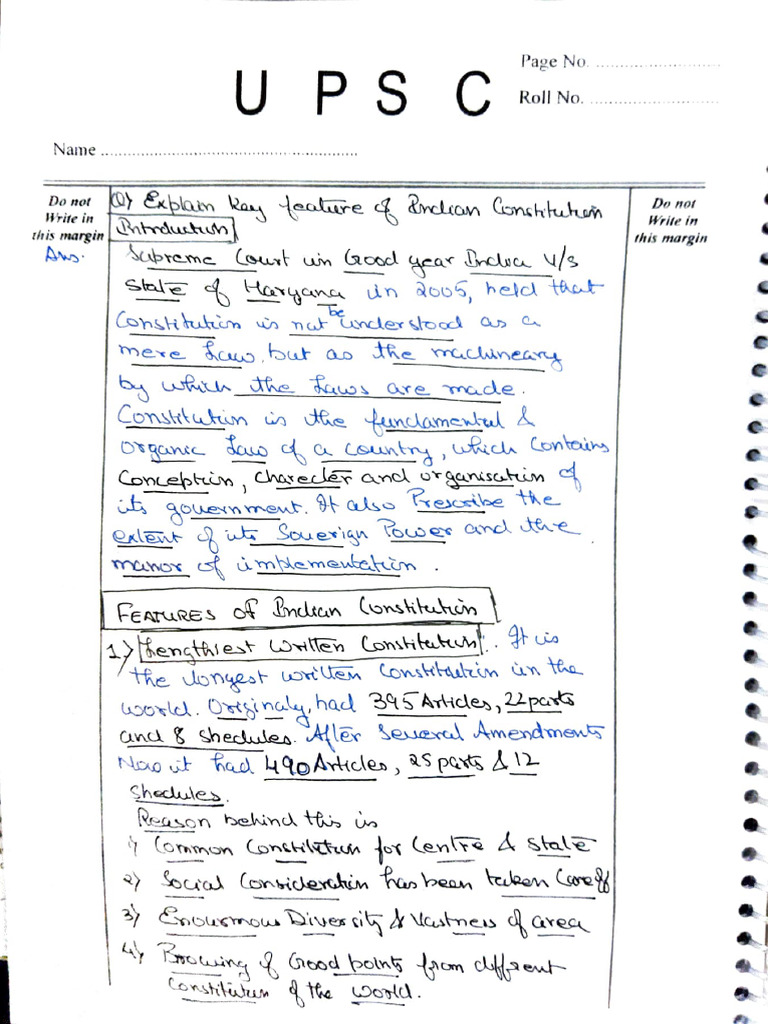 Page No. ..........................
U P S C
Roll No. ..........................
Name ....................................................
Do not
Write in
this margin
Do not
Write in
this margin
Q) Explain key feature of Indian Constitution
Introduction
Ans.
Supreme Court in Good year India V/s
State of Haryana in 2005, held that
be
Constitution is not understood as a
mere Law, but as the machineary
by which the Laws are made.
Constitution is the fundamental &
organic Law of a country, which contains
Conception, charecter and organisation of
its government. It also Prescribe the
extent of its Soverign Power and the
manor of implementation.
FEATURES of Indian Constitution
1) Lengthiest Written Constitution. It is
the longest written Constitution in the
world. Originaly, had 395 Articles, 22 parts
and 8 shedules. After several Amendments
Now it had 490 Articles, 25 parts & 12
shedules.
Reason behind this is
1) Common Constitution for Centre & State
2) Social Consideration has been taken Care off
3) Enourmous Diversity & Vastness of area
4) Browing of Good points from diffrent
Constitution of the world.